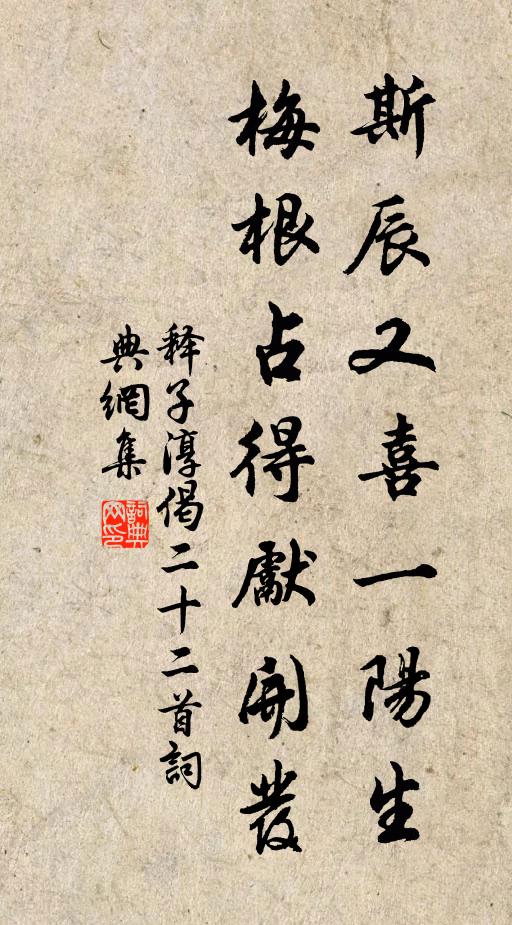 斯辰又喜一陽生
梅根占得獻開發
释子淳偈二十二首詞
典網集
詞典网印